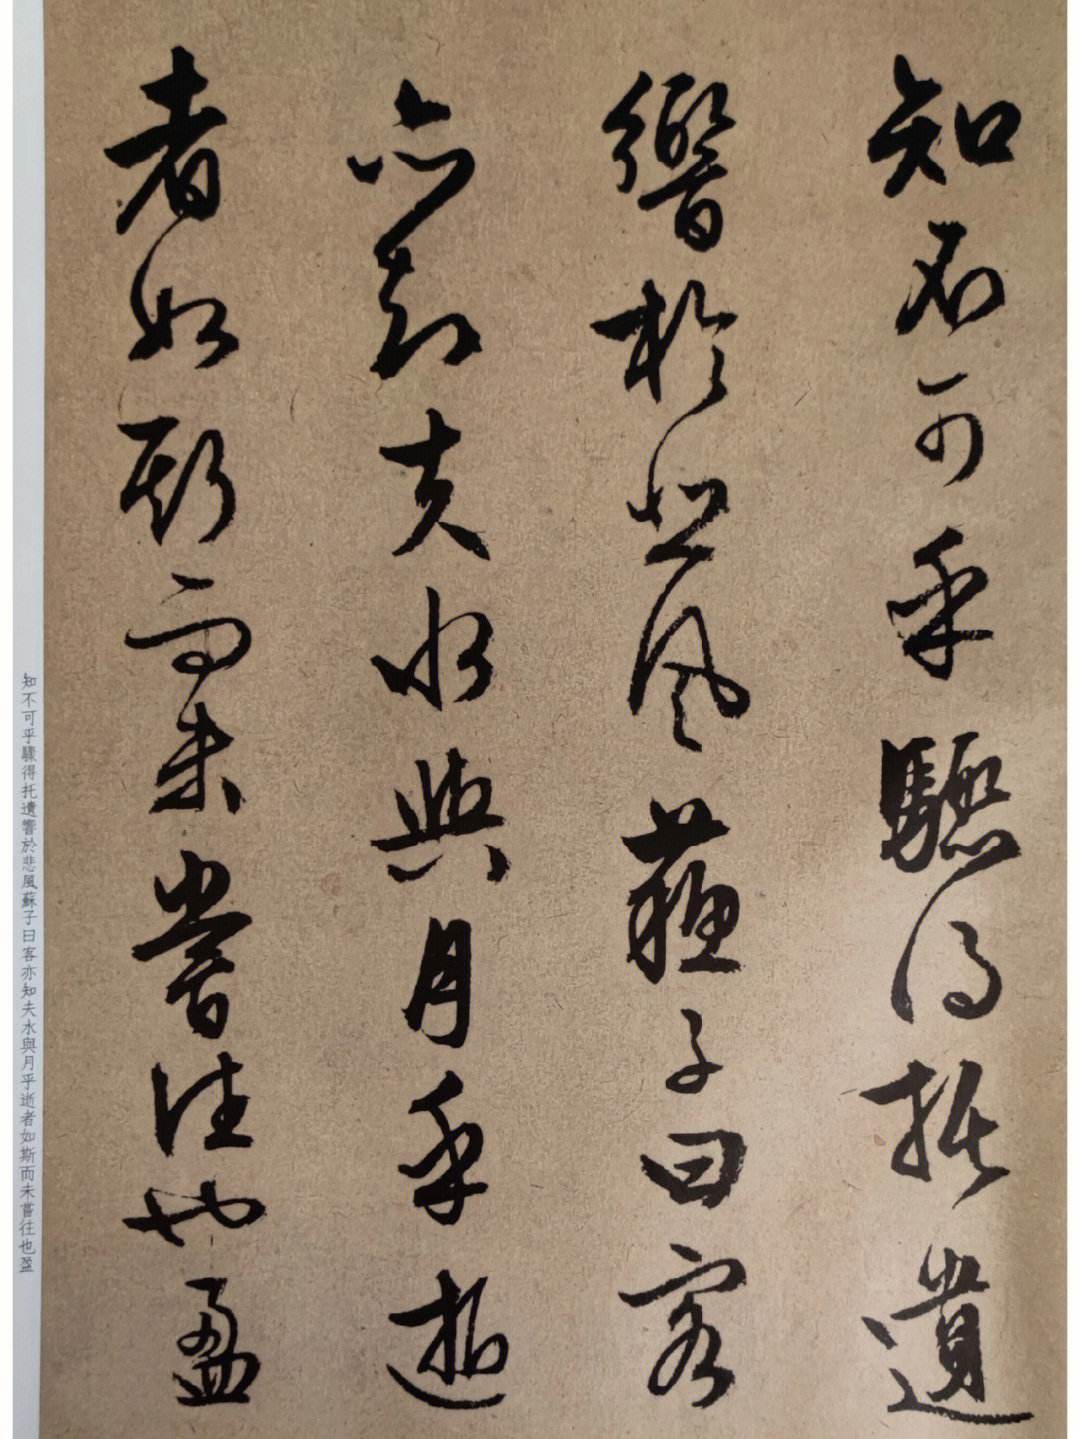 知不可乎驟得托遺
響於悲風蘇子曰客
亦知夫水與月乎逝
者如斯而未嘗往也盈
知不可乎驟得托遺響於悲風蘇子曰客亦知夫水與月乎逝者如斯而未嘗往也盈